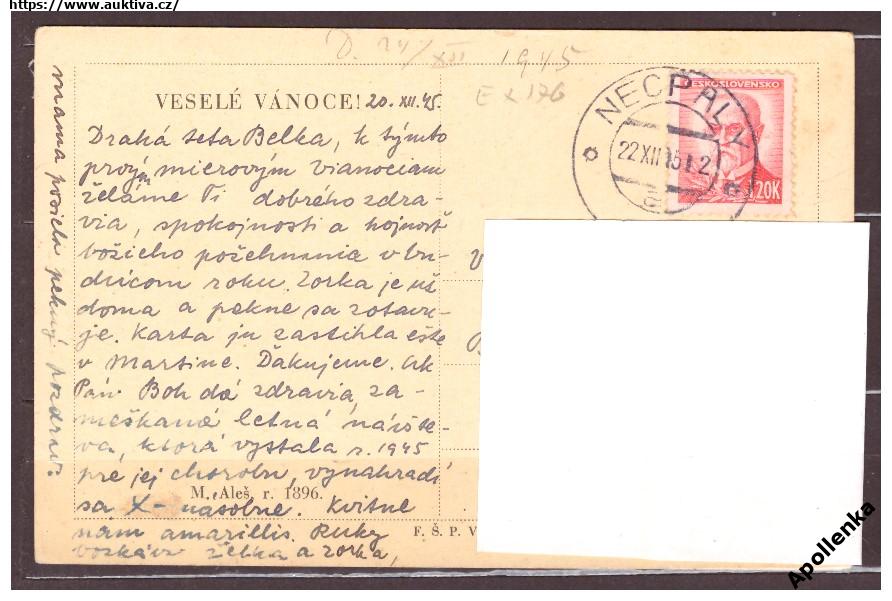 https://www.auktiva.cz/
D. 24/XII 1945
E x 176
VESELÉ VÁNOCE! 20. XII. 45.
Drahá teta Belka, k týmto
prvým mierovým vianociam
želáme Ti dobrého zdra-
via, spokojnosti a hojnosť
božieho požehnania v bu-
dúcom roku. Zorka je už
doma a pekne sa zotavu-
je. Karta ju zastihla ešte
v Martine. Ďakujeme. Ak
Pán Boh dá zdravia, za-
meškaná letná návšte-
va, ktorá vystala r. 1945
pre jej chorobu, vynahradí
sa X-násobne. Kvitne
M. Aleš, r. 1896.
nám amarillis. Ruky
bozkáva Želka a Zorka,
mama posiela pekný pozdrav.
F. Š. P. V
NECPALY
22 XII 45 12
ČESKOSLOVENSKO
1,20K
Apollenka